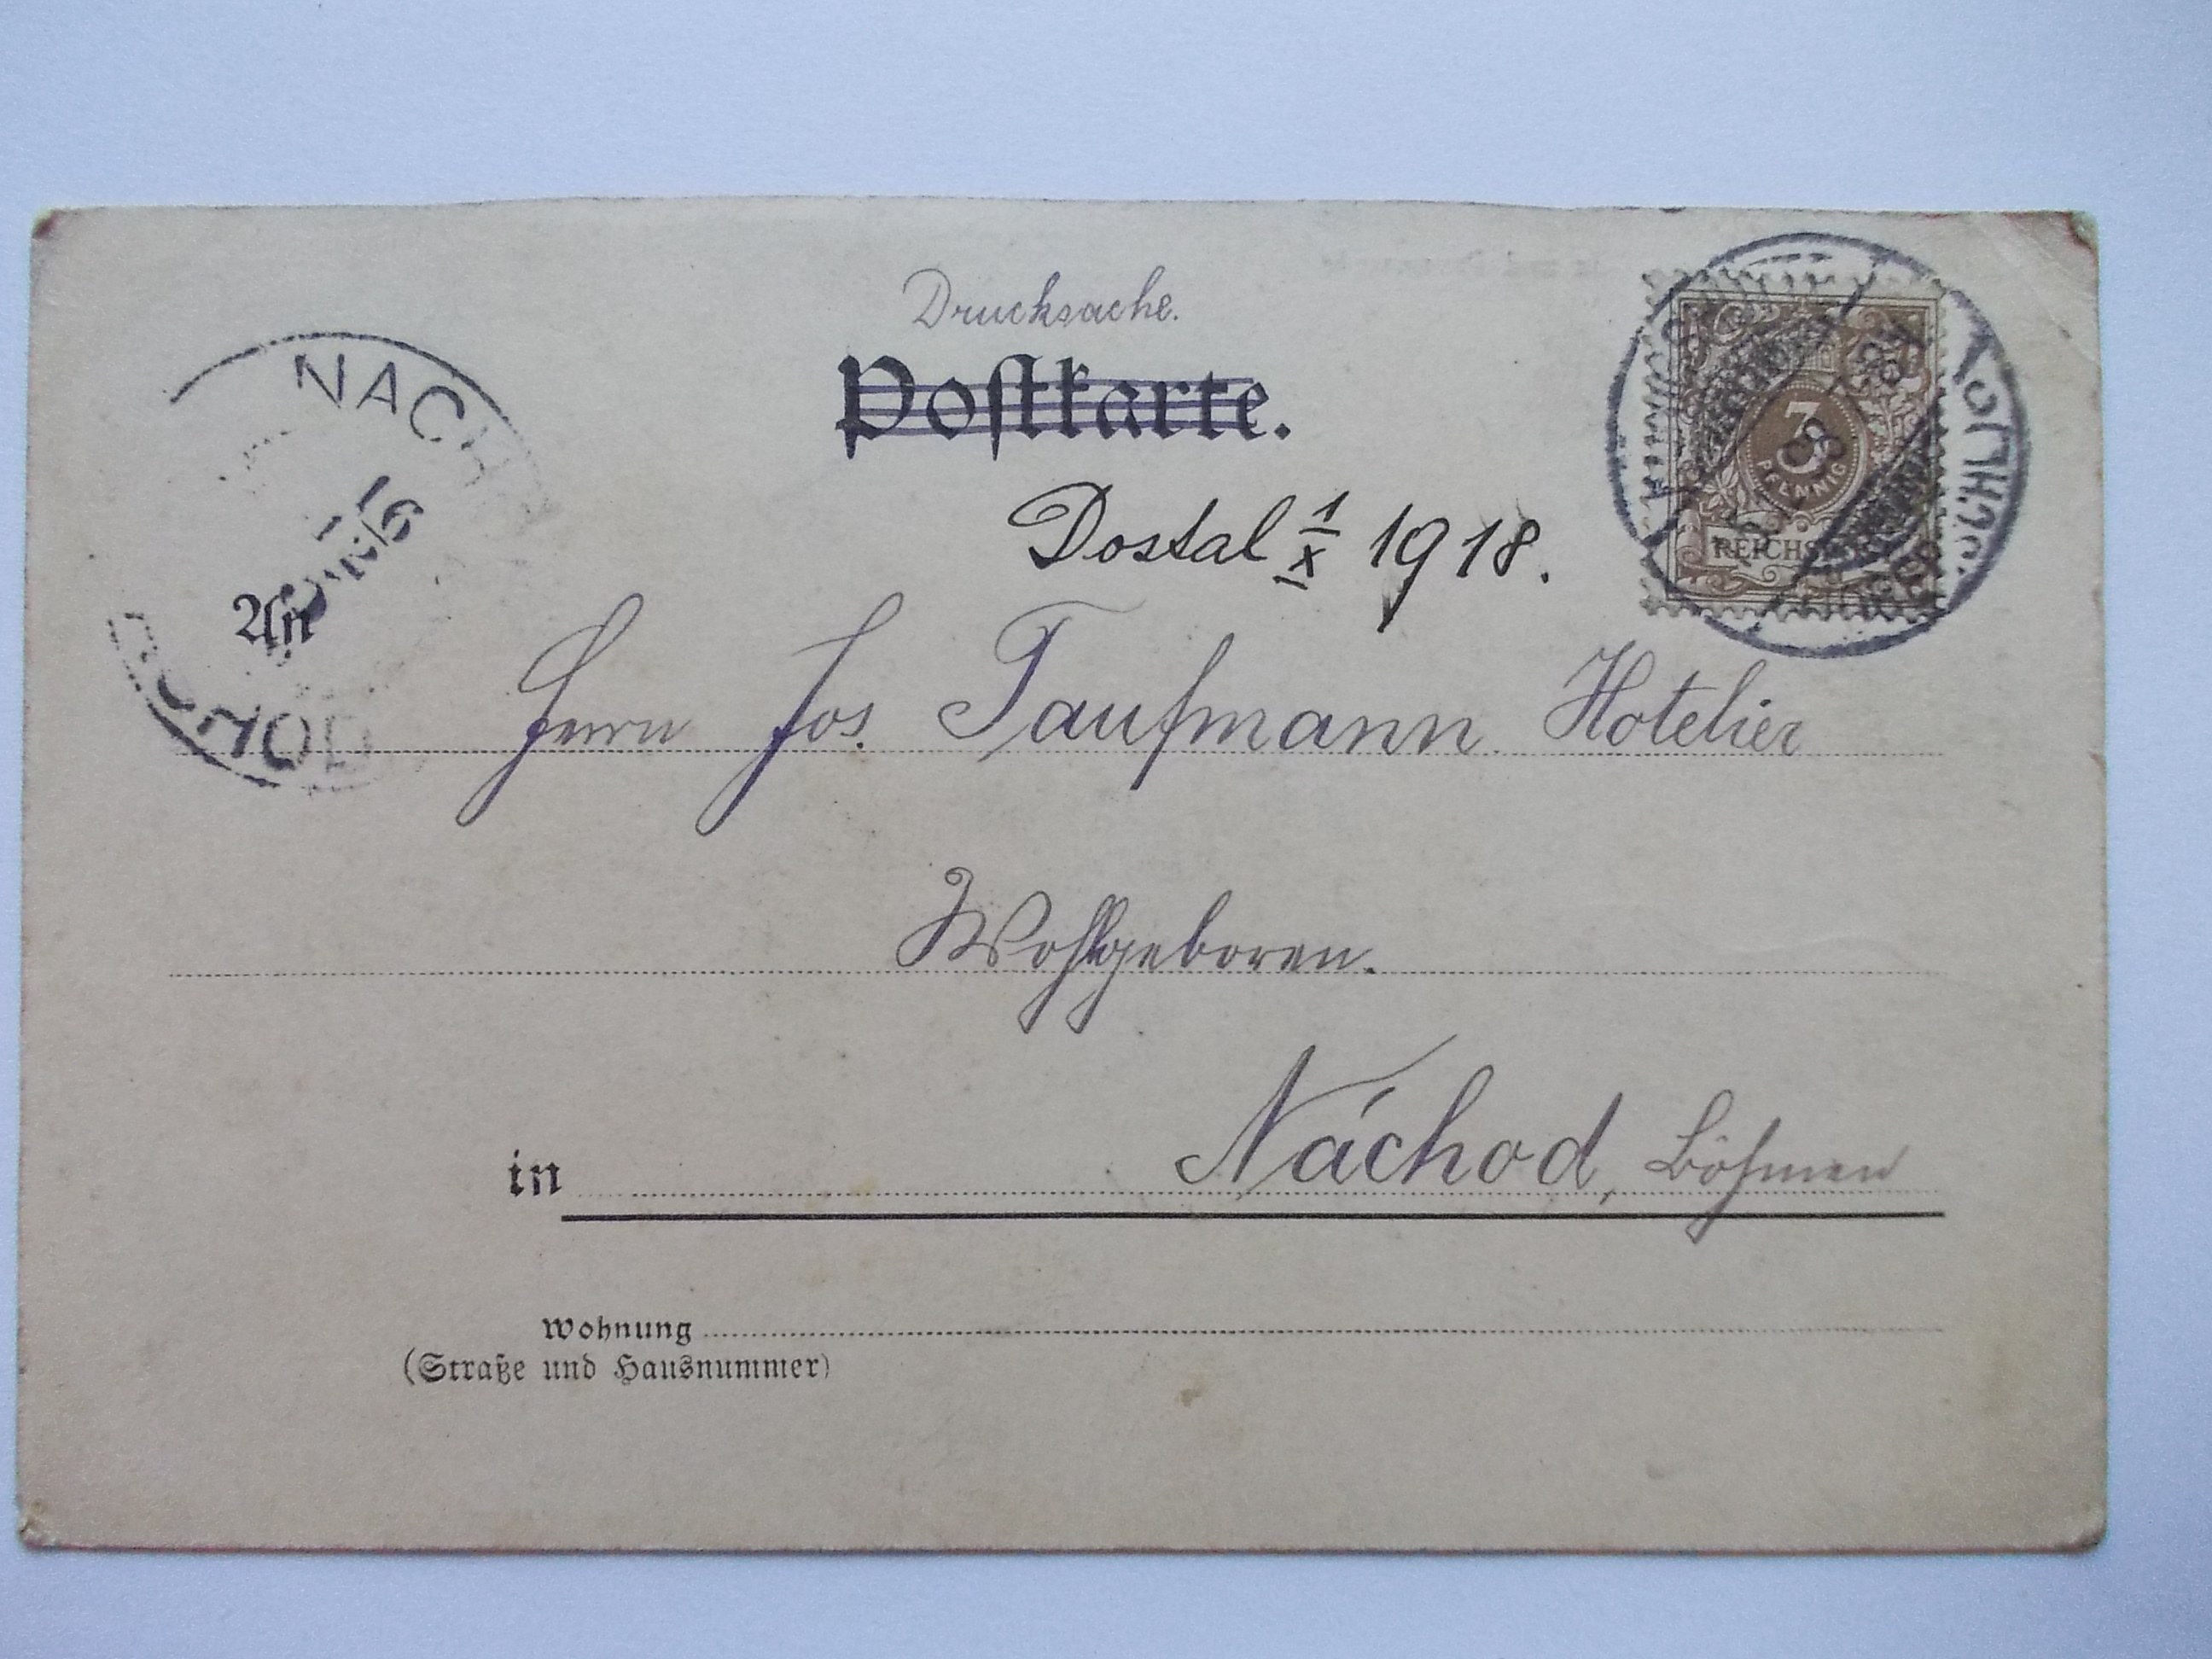 Drucksache.
Postkarte.
Dostal 1/X 1918.
3
PFENNIG
REICHSPOST
NACHOD
NACHOD
An
Herrn Jos. Taufmann Hotelier
Wohlgeboren.
in Náchod, Böhmen
Wohnung
(Straße und Hausnummer)